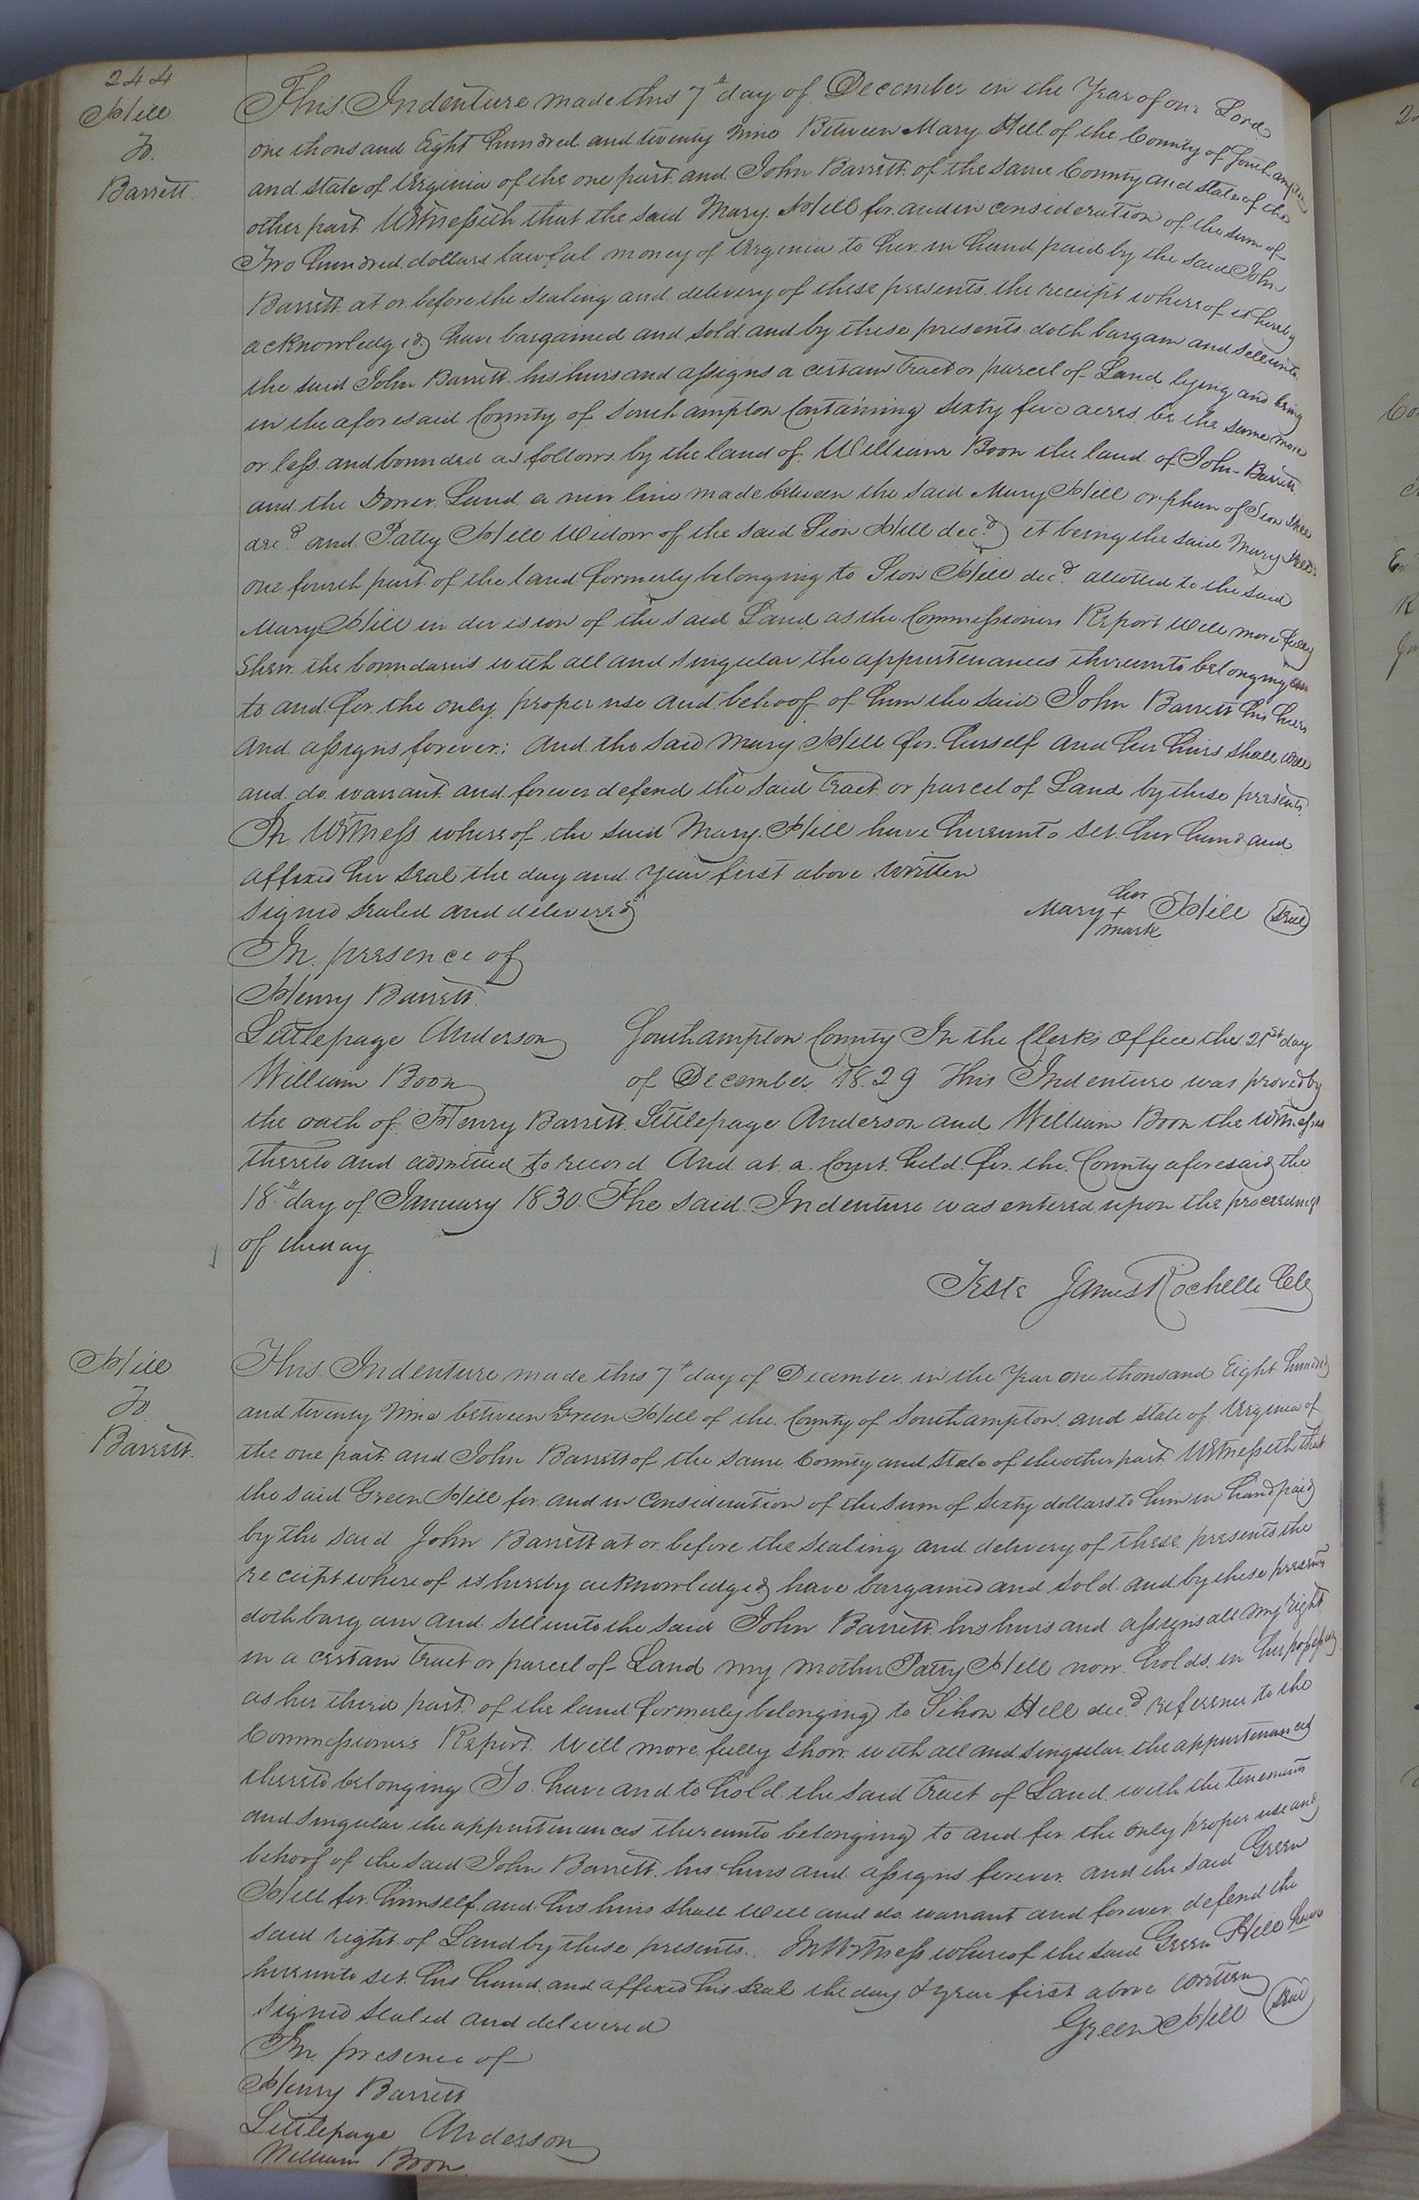 244
Hill
To
Barrett
This Indenture made this 7th day of December in the Year of our Lord
one thousand Eight hundred and twenty nine Between Mary Hill of the County of Southampton
and state of Virginia of the one part and John Barrett of the same County and state of the
other part Witnesseth that the said Mary Hill for and in consideration of the sum of
Two hundred dollars lawful money of Virginia to her in hand paid by the said John
Barrett at or before the sealing and delivery of these presents the receipt whereof is hereby
acknowledged have bargained and sold and by these presents doth bargain and sell unto
the said John Barrett his heirs and assigns a certain tract or parcel of Land lying and being
in the aforesaid County of Southampton Containing sixty five acres be the same more
or less and bounded as follows by the land of William Boon the land of John Barrett
and the Dower Land a new line made between the said Mary Hill orphan of Sion Hill
decd and Patty Hill Widow of the said Sion Hill decd it being the said Mary Hills
one fourth part of the land formerly belonging to Sion Hill decd allotted to the said
Mary Hill in devision of the said Land as the Commissioners Report will more fully
Shew the boundaries with all and singular the appurtenances thereunto belonging
to and for the only proper use and behoof of him the said John Barrett his heirs
and assigns forever: And the said Mary Hill for herself and her heirs shall will
and do warrant and forever defend the said tract or parcel of Land by these presents
In Witness whereof the said Mary Hill have hereunto set her hand and
affixed her seal the day and year first above written
signed sealed and delivered
her
Mary + Hill (Seal)
mark
In presence of
Henry Barrett
Littlepage Anderson
William Boon
Southampton County In the Clerks office the 21st day
of December 1829 This Indenture was proved by
the oath of Henry Barrett Littlepage Anderson and William Boon the witnesses
thereto and admitted to record And at a Court held for the County aforesaid the
18th day of January 1830 The said Indenture was entered upon the proceedings
of the day
Teste James Rochelle Clk
Hill
To
Barrett
This Indenture made this 7th day of December in the Year one thousand Eight hundred
and twenty Nine between Green Hill of the County of Southampton and state of Virginia of
the one part and John Barrett of the same County and state of the other part Witnesseth that
the said Green Hill for and in consideration of the sum of sixty dollars to him in hand paid
by the said John Barrett at or before the sealing and delivery of these presents the
receipt whereof is hereby acknowledged have bargained and sold and by these presents
doth bargain and sell unto the said John Barrett his heirs and assigns all my right
in a certain tract or parcel of Land my mother Patty Hill now holds in her possession
as her third part of the land formerly belonging to Sihon Hill decd reference to the
Commissioners Report Will more fully show with all and singular the appurtenances
thereto belonging To have and to hold the said tract of Land with the tenements
and singular the appurtenances thereunto belonging to and for the only proper use and
behoof of the said John Barrett his heirs and assigns forever and the said Green
Hill for himself and his heirs shall will and do warrant and forever defend the
said right of Land by these presents. In Witness whereof the said Green Hill have
hereunto set his hand and affixed his seal the day & year first above written
signed sealed and delivered
Green Hill (Seal)
In presence of
Henry Barrett
Littlepage Anderson
William Boon